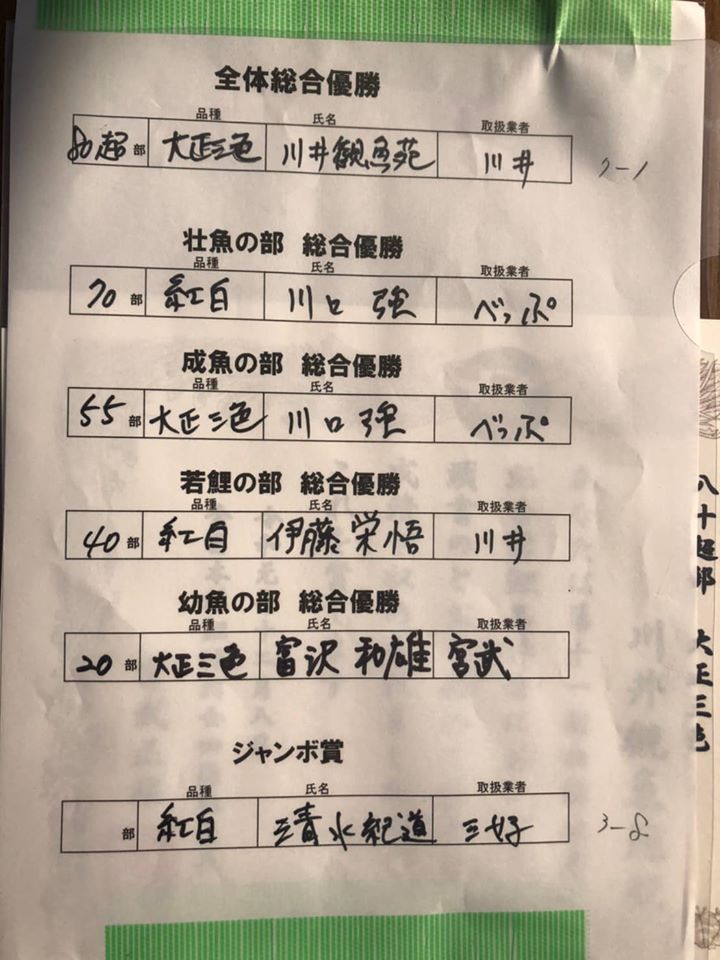 全体総合優勝
品種 氏名 取扱業者
80超部 大正三色 川井観魚苑 川井
7-1
壮魚の部 総合優勝
品種 氏名 取扱業者
70部 紅白 川口 強 べっぷ
成魚の部 総合優勝
品種 氏名 取扱業者
55部 大正三色 川口 強 べっぷ
若鯉の部 総合優勝
品種 氏名 取扱業者
40部 紅白 伊藤 栄悟 川井
幼魚の部 総合優勝
品種 氏名 取扱業者
20部 大正三色 富沢 和雄 宮武
ジャンボ賞
品種 氏名 取扱業者
部 紅白 清水 紀道 三好
3-8
八十超部 大正三色